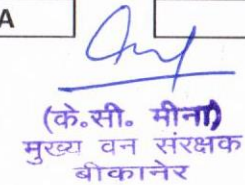 A
(के.सी. मीना)
मुख्य वन संरक्षक
बीकानेर